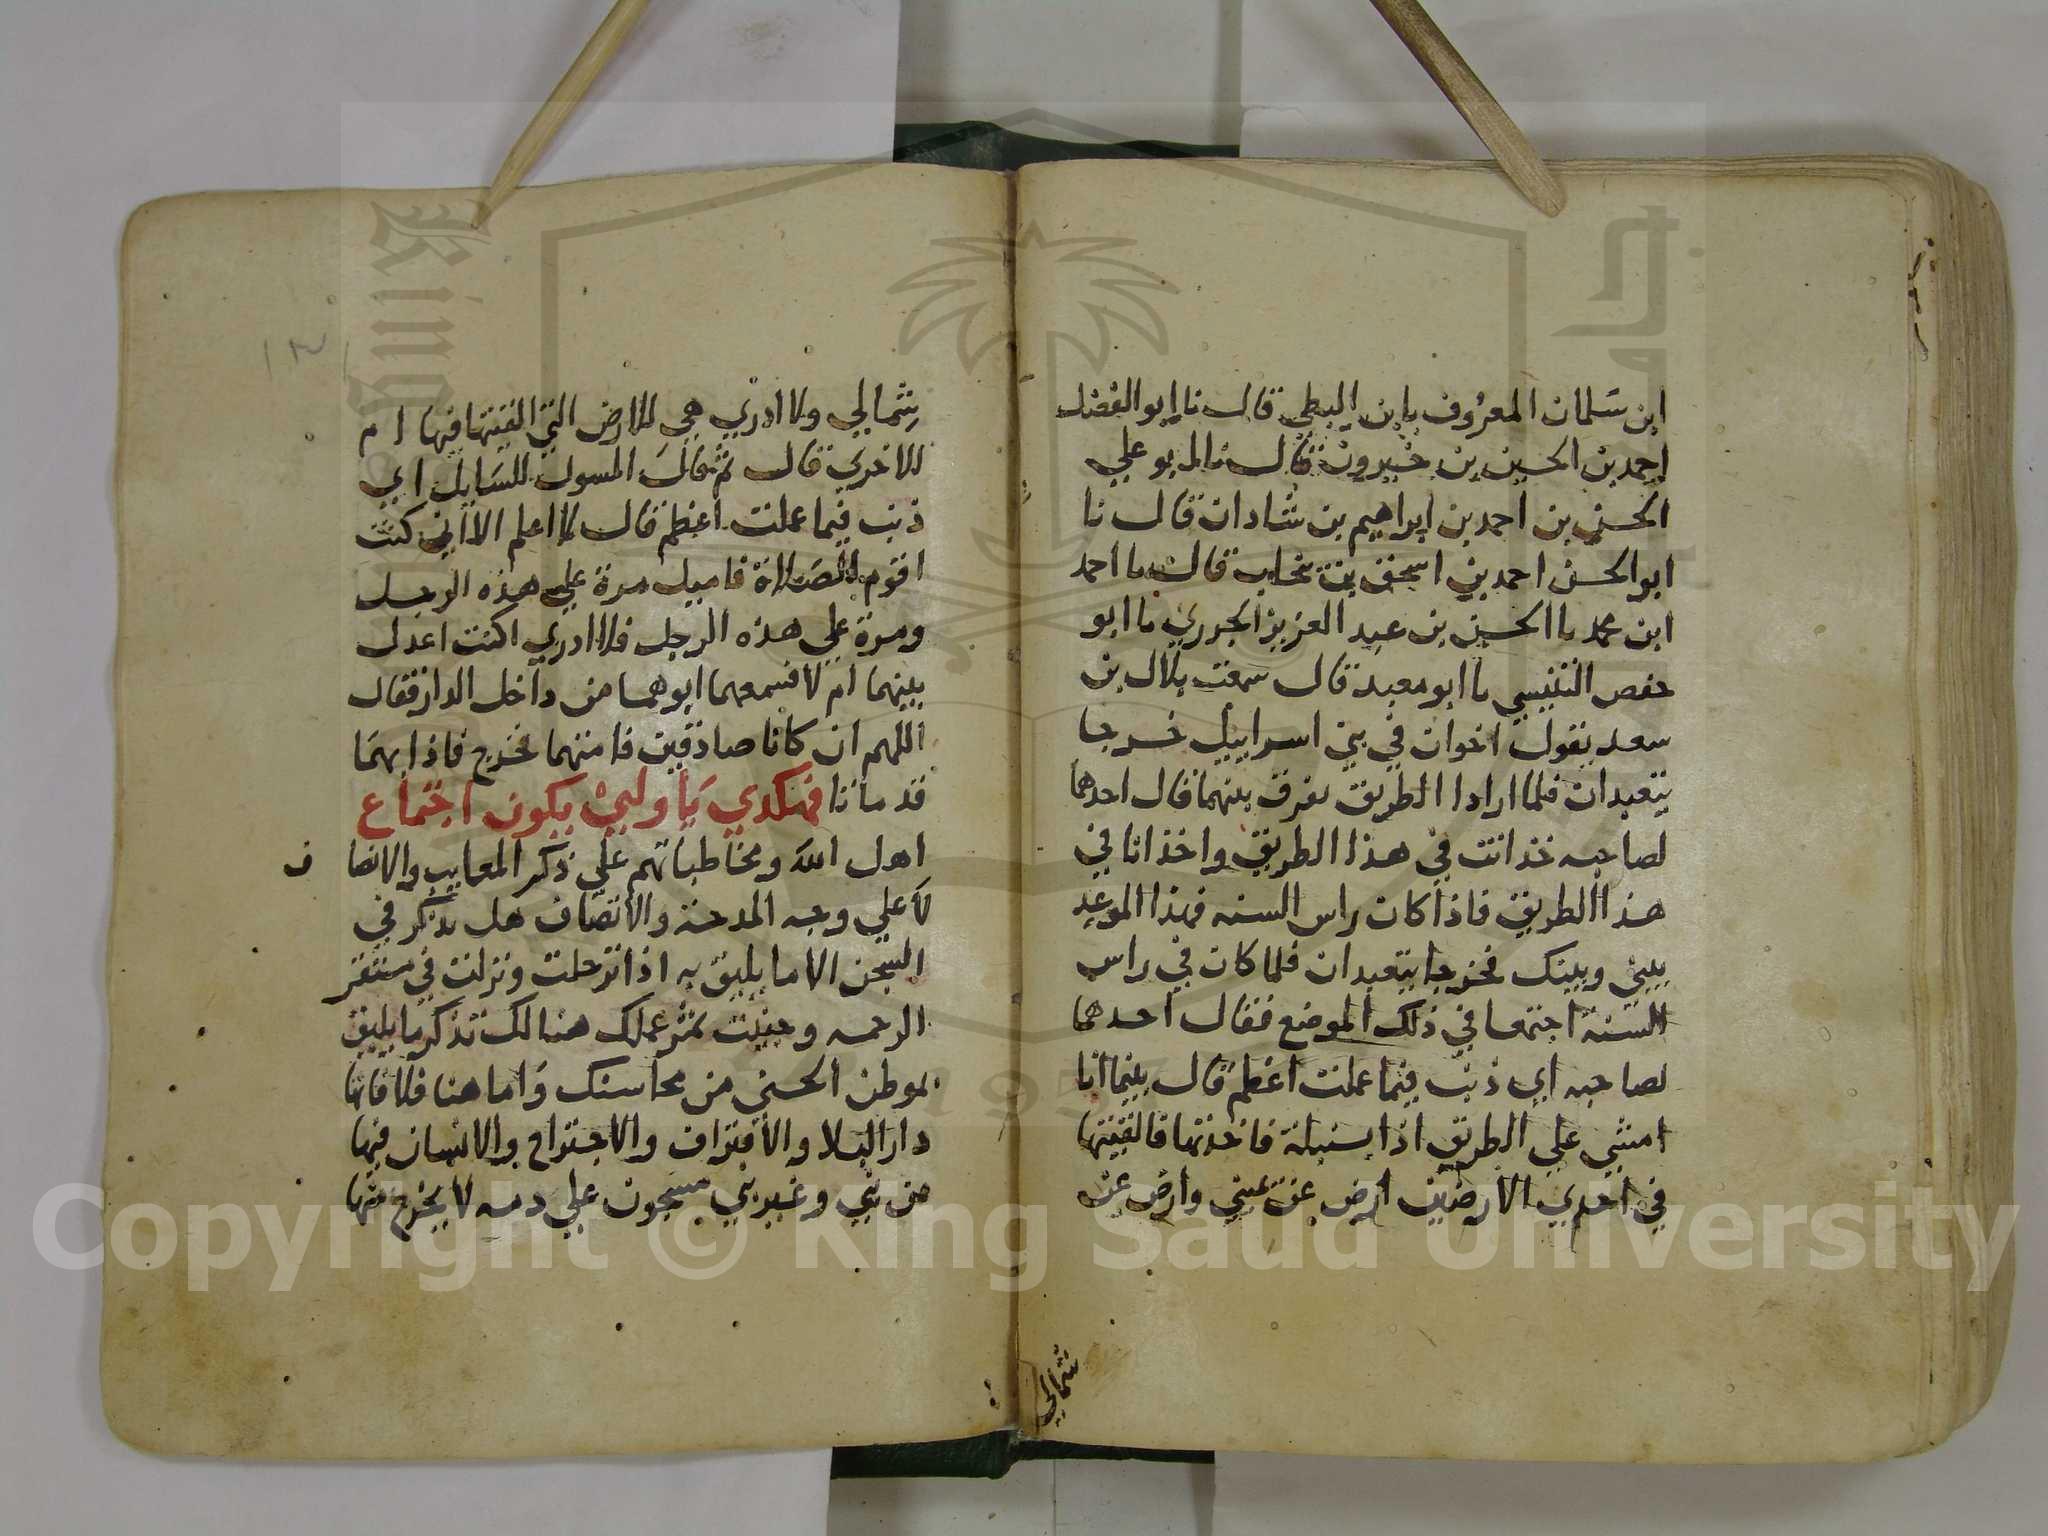 ابن سلمان المعروف بابن البطي قال نا ابو الفضل
احمد بن الحسين بن خيرون قال نا ابو علي
الحسن بن احمد بن ابراهيم بن شادان قال نا
ابو الحسن احمد بن اسحق بن نخاب قال نا احمد
ابن محمد نا الحسين بن عبد العزيز الجروي نا ابو
حفص التنيسي نا ابو معبد قال سمعت بلال بن
سعد يقول اخوان في بني اسراييل خرجا
يتعبدان فلما ارادا الطريق تفرق بينهما قال احدهما
لصاحبه خذ انت في هذا الطريق واخذ انا في
هذا الطريق فاذا كان راس السنه فهذا الموعد
بيني وبينك فخرجا يتعبدان فلما كان في راس
السنة اجتمعا في ذلك الموضع فقال احدهما
لصاحبه اي ذنب فيما عملت اعظم قال بينما انا
امشي علي الطريق اذا بسنبلة فاخذتها فالقيتها
في احدي الارضين ارض عن يميني وارض عن
شمالي
شمالي ولا ادري هي للارض التي القيتها فيها ام
للاخري قال ثم قال المسول للسايل اي
ذنب فيما عملت اعظم قال لا اعلم الا اني كنت
اقوم للصلاة فاميل مرة علي هذه الرجل
ومرة علي هذه الرجل فلا ادري اكنت اعدل
بينهما ام لا فسمعهما ابوهما من داخل الدار فقال
اللهم ان كانا صادقين فامتهما فخرج فاذا بهما
قد ماتا فهكدي يا وليي يكون اجتماع
اهل الله ومخاطباتهم علي ذكر المعايب والانصا
ف
لا علي وجه المدحة والاتصاف هل يذكر في
السجن الا ما يليق به اذا ترحلت ونزلت في مستقر
الرحمه وجنيت ثمر عملك هنالك تذكر ما يليق
بموطن الحسني من محاسنك واما هنا فلا فانها
دار البلا والاقتراف والاجتراح والانسان فيها
من نبي وغير نبي مسجون علي دمه لا يخرج منها
١٣١